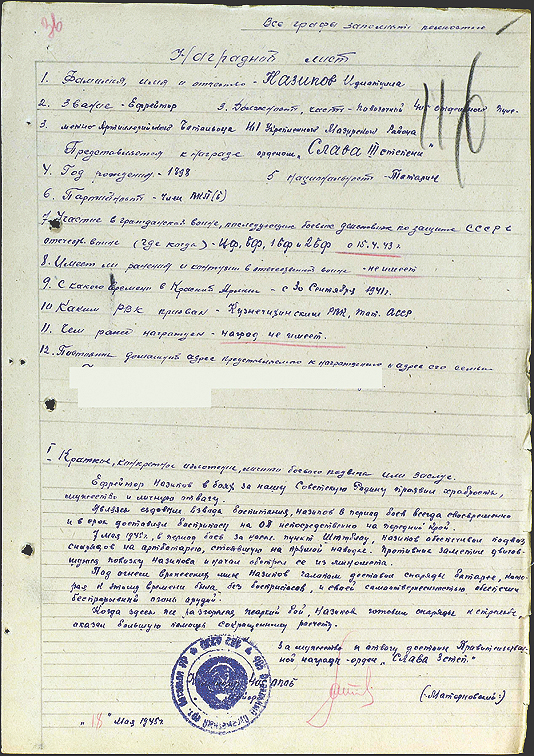 Все графы заполнять полностью
Наградной лист
1. Фамилия, имя и отчество - Назипов
2. Звание - Ефрейтор 3. Должность, часть - повозочный
3. Артиллерийского батальона 161 Укрепленного Района
Представляется к награде орденом "Слава III степени"
4. Год рождения - 1898 5 национальность - Татарин
6. Партийность - член ВКП(б)
7. Участие в гражданской войне, последующие боевые действия по защите СССР в
отечеств. войне (где когда) - ЦФ, БФ, 1 БФ и 2 БФ с 15.4.43 г.
8. Имеет ли ранения и контузии в отечественной войне - не имеет
9. С какого времени в Красной Армии - с 30 Сентября 1941 г.
10 Каким РВК призван - РВК Тат. АССР
11. Чем ранее награжден - наград не имеет.
12. Постоянный домашний адрес представляемого к награждению и адрес его семьи
I Краткое, конкретное изложение, личного боевого подвига или заслуг.
Ефрейтор Назипов в боях за нашу Советскую Родину проявил храбрость,
мужество и личную отвагу.
Являясь ездовым взвода боепитания, Назипов в период боев всегда своевременно
и в срок доставлял боеприпасы на ОП непосредственно на передний край.
7 мая 1945 г. в период боя за насел. пункт Назипов обеспечивал подвоз
снарядов на артбатарею, стоявшую на прямой наводке. Противник заметив движов-
шуюся повозку Назипова и начал обстрел ее из миномета.
Под огнем вражеских мин Назипов галопом доставил снаряды батарее, кото-
рая к этому времени была без боеприпасов, и своей самоотверженностью обеспечил
беспрерывный огонь орудий.
Когда здесь же разгорелся жаркий бой Назипов готовил снаряды к стрельбе
оказал большую помощь сокращенному расчету.
За мужество и отвагу достоин Правительствен-
ной награды - орден "Слава 3 степ."
"18" Мая 1945 г.